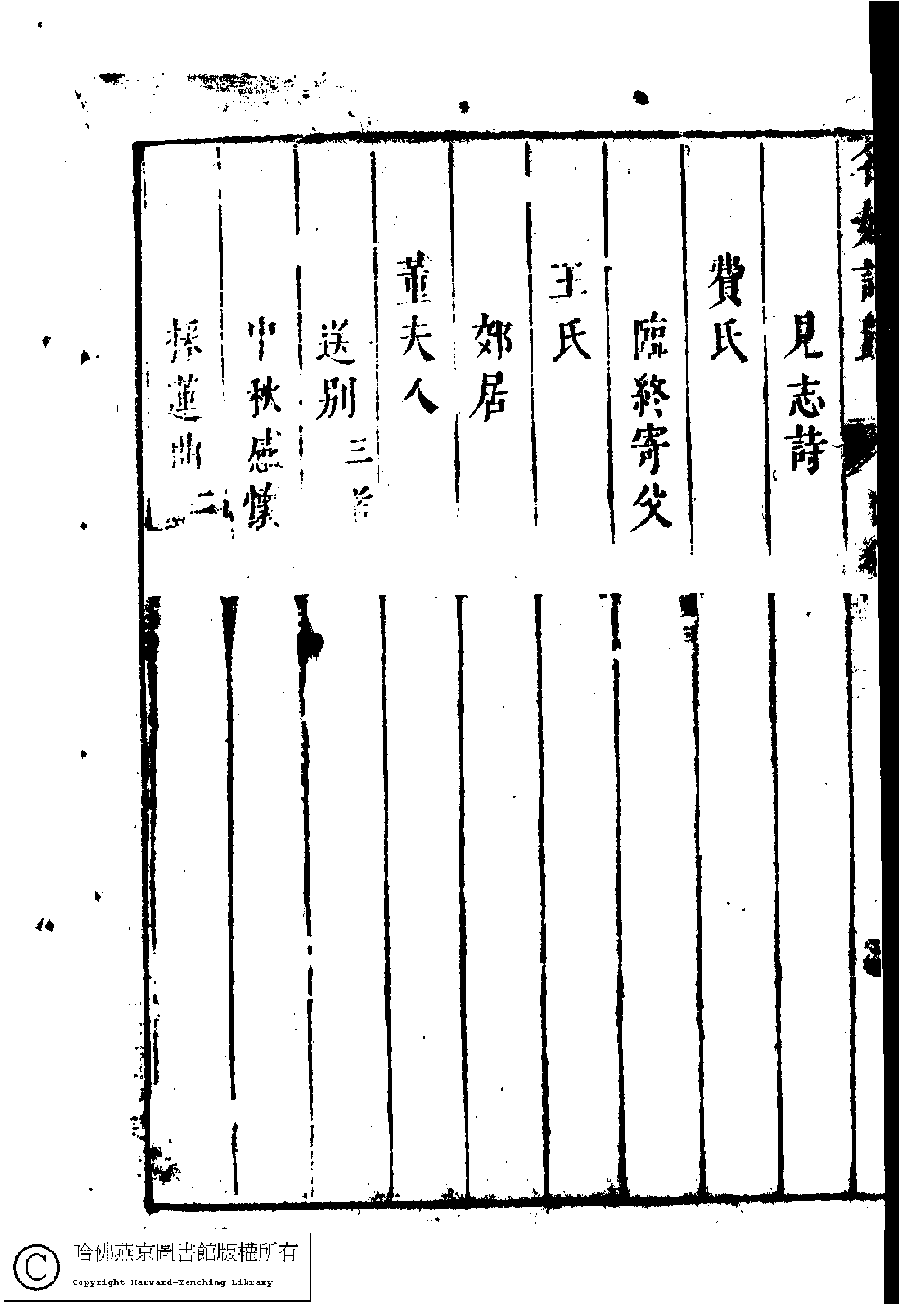 見志詩
費氏
臨終寄父
王氏
郊居
董夫人
送別三首
中秋感懷
採蓮曲二
哈佛燕京圖書館版權所有
Copyright Harvard-Yenching Library